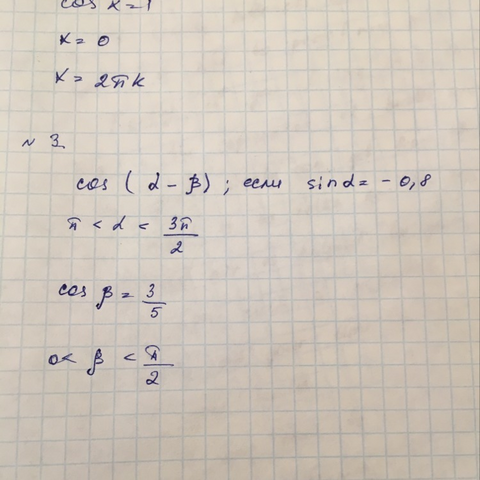 cos x = 1
x = 0
x = 2πk
№ 3
cos (α - β); если sinα = - 0,8
π < α < 3π/2
cos β = 3/5
0 < β < π/2